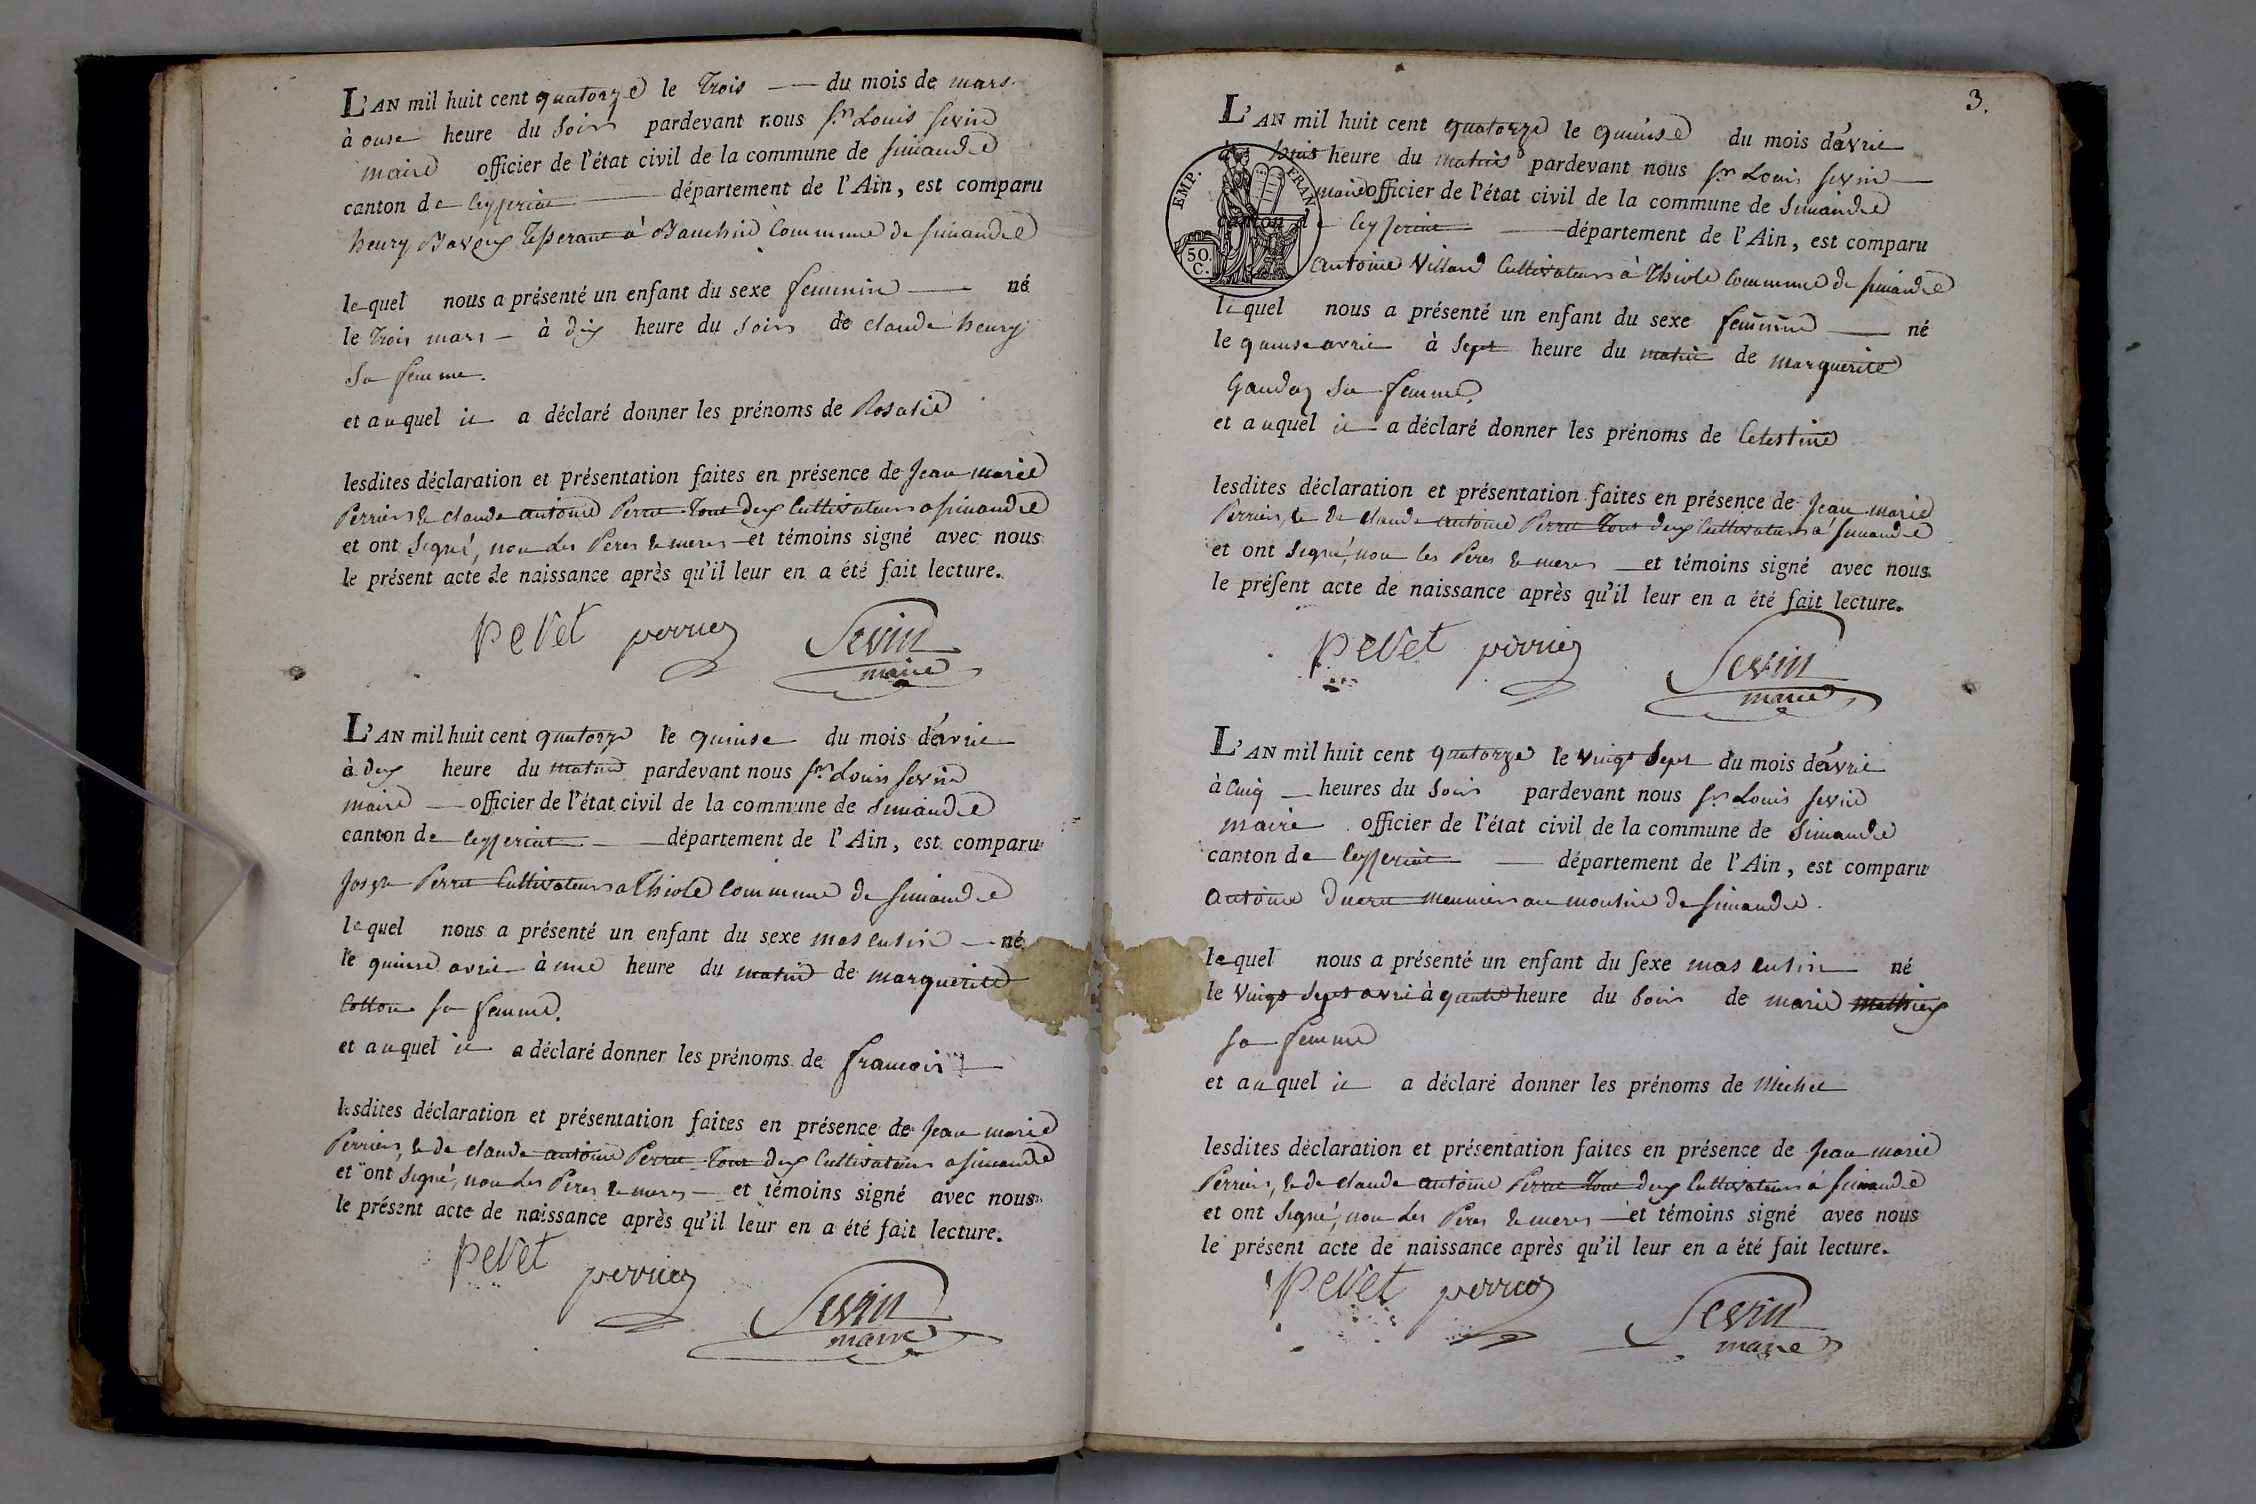 L'AN mil huit cent quatorze le trois du mois de mars
à onse heure du soir pardevant nous Sr Louis Sevin
maire officier de l'état civil de la commune de Simandre
canton de Ceyzeriat département de l'Ain, est comparu
henry Tisserant à Banchin Commune de Simandre
lequel nous a présenté un enfant du sexe feminin né
le trois mars à dix heure du soir de claude henry
Sa femme.
et auquel il a déclaré donner les prénoms de Rosalie
lesdites déclaration et présentation faites en présence de Jean marie
Perrier, & claude antoine Perret tout deux Cultivateurs a Simandre
et ont Signé, non Les Peres & meres et témoins signé avec nous
le présent acte de naissance après qu'il leur en a été fait lecture.
peret perrier Sevin
maire
L'AN mil huit cent quatorze le quinse du mois d'avril
à dix heure du matin pardevant nous Sr Louis Sevin
maire officier de l'état civil de la commune de Simandre
canton de Ceyzeriat département de l'Ain, est comparu
Joseph Perret Cultivateur a Thiole Commune de Simandre
lequel nous a présenté un enfant du sexe masculin né
le quinse avril à une heure du matin de marguerite
Cotton sa femme.
et auquel il a déclaré donner les prénoms de francois
lesdites déclaration et présentation faites en présence de Jean marie
Perrier, & de claude antoine Perret tout deux Cultivateurs a Simandre
et ont Signé, non Les Peres & meres et témoins signé avec nous
le présent acte de naissance après qu'il leur en a été fait lecture.
peret perrier Sevin
maire
3.
L'AN mil huit cent quatorze le quinse du mois d'avril
à huit heure du matin pardevant nous Sr Louis Sevin
maire officier de l'état civil de la commune de Simandre
canton de Ceyzeriat département de l'Ain, est comparu
EMP. FRAN
50
C.
Antoine Villard Cultivateur à Thiole Commune de Simandre
lequel nous a présenté un enfant du sexe feminin né
le quinse avril à Sept heure du matin de marguerite
Sa femme.
et auquel il a déclaré donner les prénoms de Celestine
lesdites déclaration et présentation faites en présence de Jean marie
Perrier, & de claude antoine Perret tout deux Cultivateurs à Simandre
et ont Signé, non les Peres & meres et témoins signé avec nous
le présent acte de naissance après qu'il leur en a été fait lecture.
peret perrier Sevin
maire
L'AN mil huit cent quatorze le vingt Sept du mois d'avril
à Cinq heures du soir pardevant nous Sr Louis Sevin
maire officier de l'état civil de la commune de Simandre
canton de Ceyzeriat département de l'Ain, est comparu
Antoine Ducret meunier au moulin de Simandre.
lequel nous a présenté un enfant du sexe masculin né
le vingt Sept avril à quatre heure du soir de marie Mathieu
sa femme
et auquel il a déclaré donner les prénoms de Michel
lesdites déclaration et présentation faites en présence de Jean marie
Perrier, & de claude antoine Perret tout deux Cultivateurs à Simandre
et ont Signé, non Les Peres & meres et témoins signé avec nous
le présent acte de naissance après qu'il leur en a été fait lecture.
peret perrier Sevin
maire